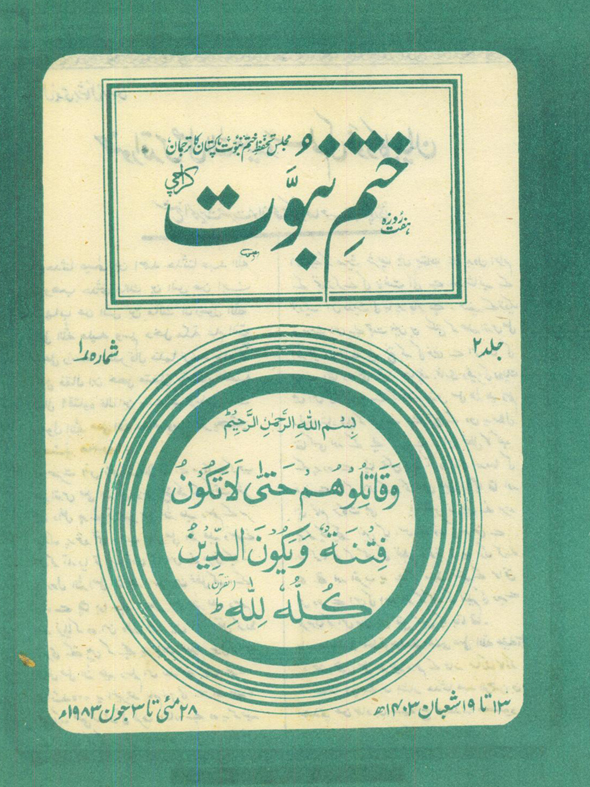 مجلس تحفظ ختم نبوت پاکستان کا ترجمان
ہفت روزہ
ختمِ نبوَّت
کراچی
جلد ۲
شمارہ ۱
بِسْمِ اللهِ الرَّحْمٰنِ الرَّحِيْمِ
وَقَاتِلُوْهُمْ حَتّٰى لَا تَكُوْنَ
فِتْنَةٌ وَّيَكُوْنَ الدِّيْنُ
كُلُّهٗ لِلّٰهِ ط
(القرآن)
۱۳ تا ۱۹ شعبان ۱۴۰۳ھ
۲۸ مئی تا ۳ جون ۱۹۸۳ء